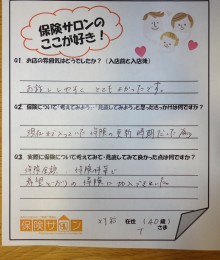 保険サロンの
ここが好き！
Q1. お店の雰囲気はどうでしたか？（入店前と入店後）
お話 しやすく とても よかったです。
Q2. 保険について「考えてみよう」・「見直してみよう」と思ったきっかけは何ですか？
現在 入っていた 保険の 更新 時期だった為
Q3. 実際に保険について考えてみて・見直してみて良かった点は何ですか？
保険金額 保険
希望どおりの 保険に 加入できました。
保険サロン
在住 (40歳)
T さま